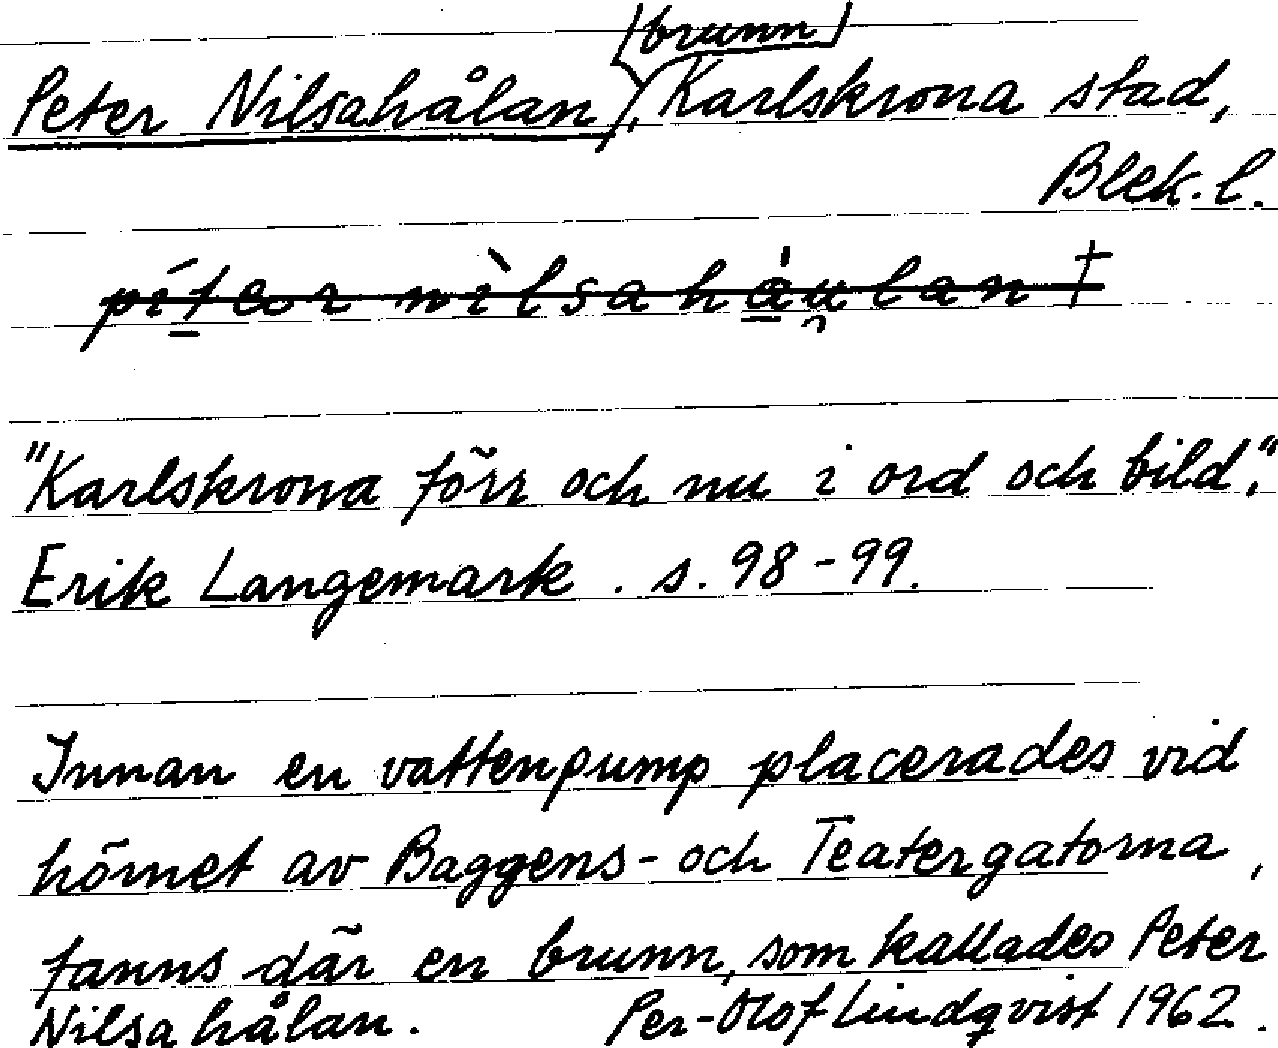 (brunn)
Peter Nilsahålan, Karlskrona stad,
Blek. l.
"Karlskrona förr och nu i ord och bild".
Erik Langemark. s. 98-99.
Innan en vattenpump placerades vid
hörnet av Baggens- och Teatergatorna,
fanns där en brunn, som kallades Peter
Nilsahålan. Per-Olof Lindqvist 1962.